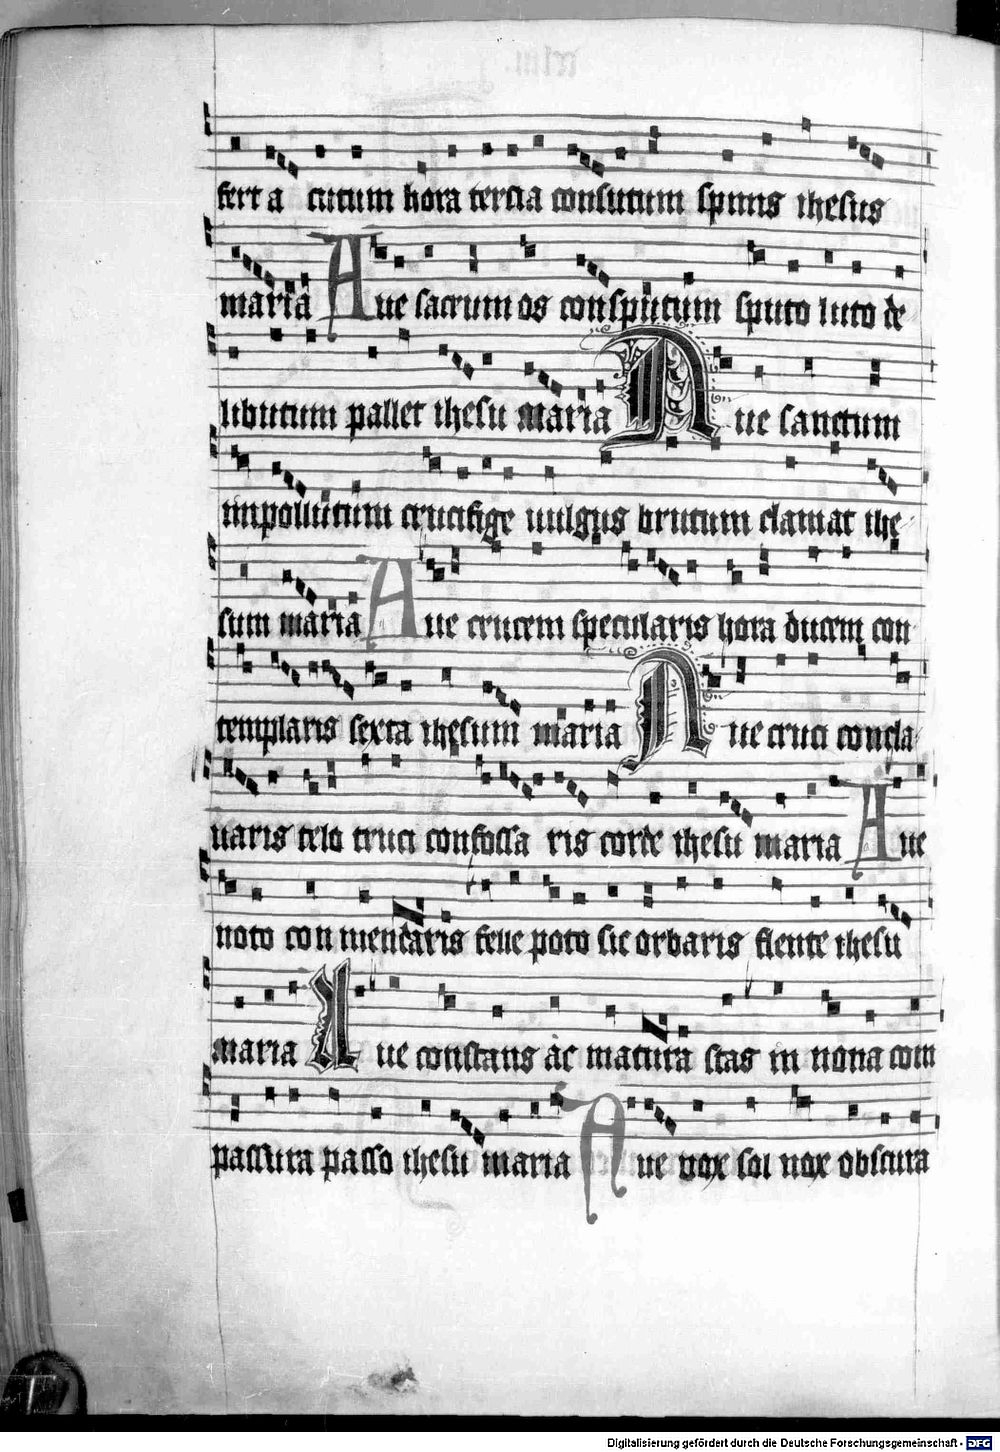 fert a cutum hora tercia consutum spinis ihesus
maria Aue sacrum os consputum sputo luto de
libutum pallet ihesu maria Aue sanctum
impollutum crucifige uulgus brutum clamat ihe
sum maria Aue crucem specularis hora ducem con
templaris sexta ihesum maria Aue cruci concla
uaris telo truci confossa ris corde ihesu maria Aue
noto con mentaris felle poto sic orbaris flente ihesu
maria Aue constans ac matura stas in nona com
passura passo ihesu maria Aue vox sol nox obscura
Digitalisierung gefördert durch die Deutsche Forschungsgemeinschaft - DFG